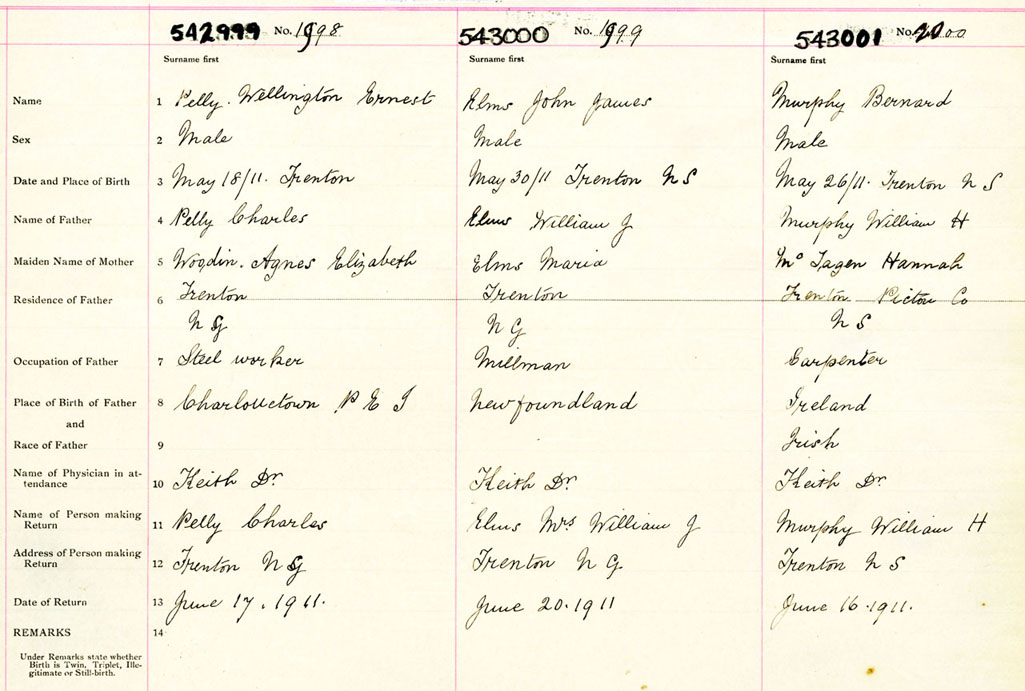 542999 No. 1998 543000 No. 1999 543001 No. 2000
Surname first Surname first Surname first
Name 1 Pelly. Wellington Ernest Elms John James Murphy Bernard
Sex 2 Male Male Male
Date and Place of Birth 3 May 18/11. Trenton May 30/11 Trenton N S May 26/11. Trenton N S
Name of Father 4 Pelly Charles Elms William J Murphy William H
Maiden Name of Mother 5 Wogdin. Agnes Elizabeth Elms Maria Hannah
Residence of Father 6 Trenton Trenton Trenton Pictou Co
N G N G N S
Occupation of Father 7 Steel worker Millman Carpenter
Place of Birth of Father 8 Charlottetown P E I Newfoundland Ireland
and
Race of Father 9 Irish
Name of Physician in at-
tendance 10 Keith Dr Keith Dr Keith Dr
Name of Person making
Return 11 Pelly Charles Elms Mrs William J Murphy William H
Address of Person making
Return 12 Trenton N G Trenton N G. Trenton N S
Date of Return 13 June 17. 1911. June 20. 1911 June 16. 1911.
REMARKS 14
Under Remarks state whether
Birth is Twin, Triplet, Ille-
gitimate or Still-birth.